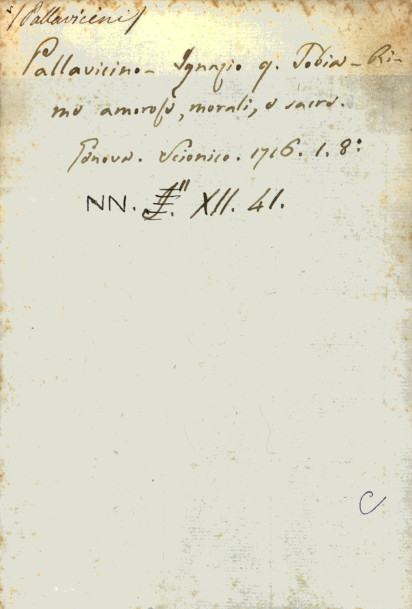 /Pallavicini/
Pallavicino - Ignazio q. Tobia - Ri-
me amorose, morali, e sacre.
Genova. Scionico. 1716. 1. 8:
NN. XII. 41.
C